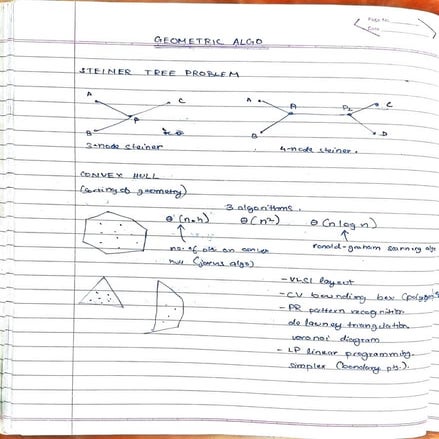 Page No.
Date
GEOMETRIC ALGO
STEINER TREE PROBLEM
A C A P1 P2 C
B P B D
3-node steiner 4-node steiner.
CONVEX HULL
(sorting of geometry)
3 algorithms.
θ(n.h) θ(n²) θ(n log n)
no. of pts on convex ronald-graham scanning algo
hull (jarvis algo)
- VLSI layout
- CV bounding box (polygon)
- PR pattern recognition
de launey triangulation
voronoi diagram
- LP linear programming.
simplex (boundary pts.)